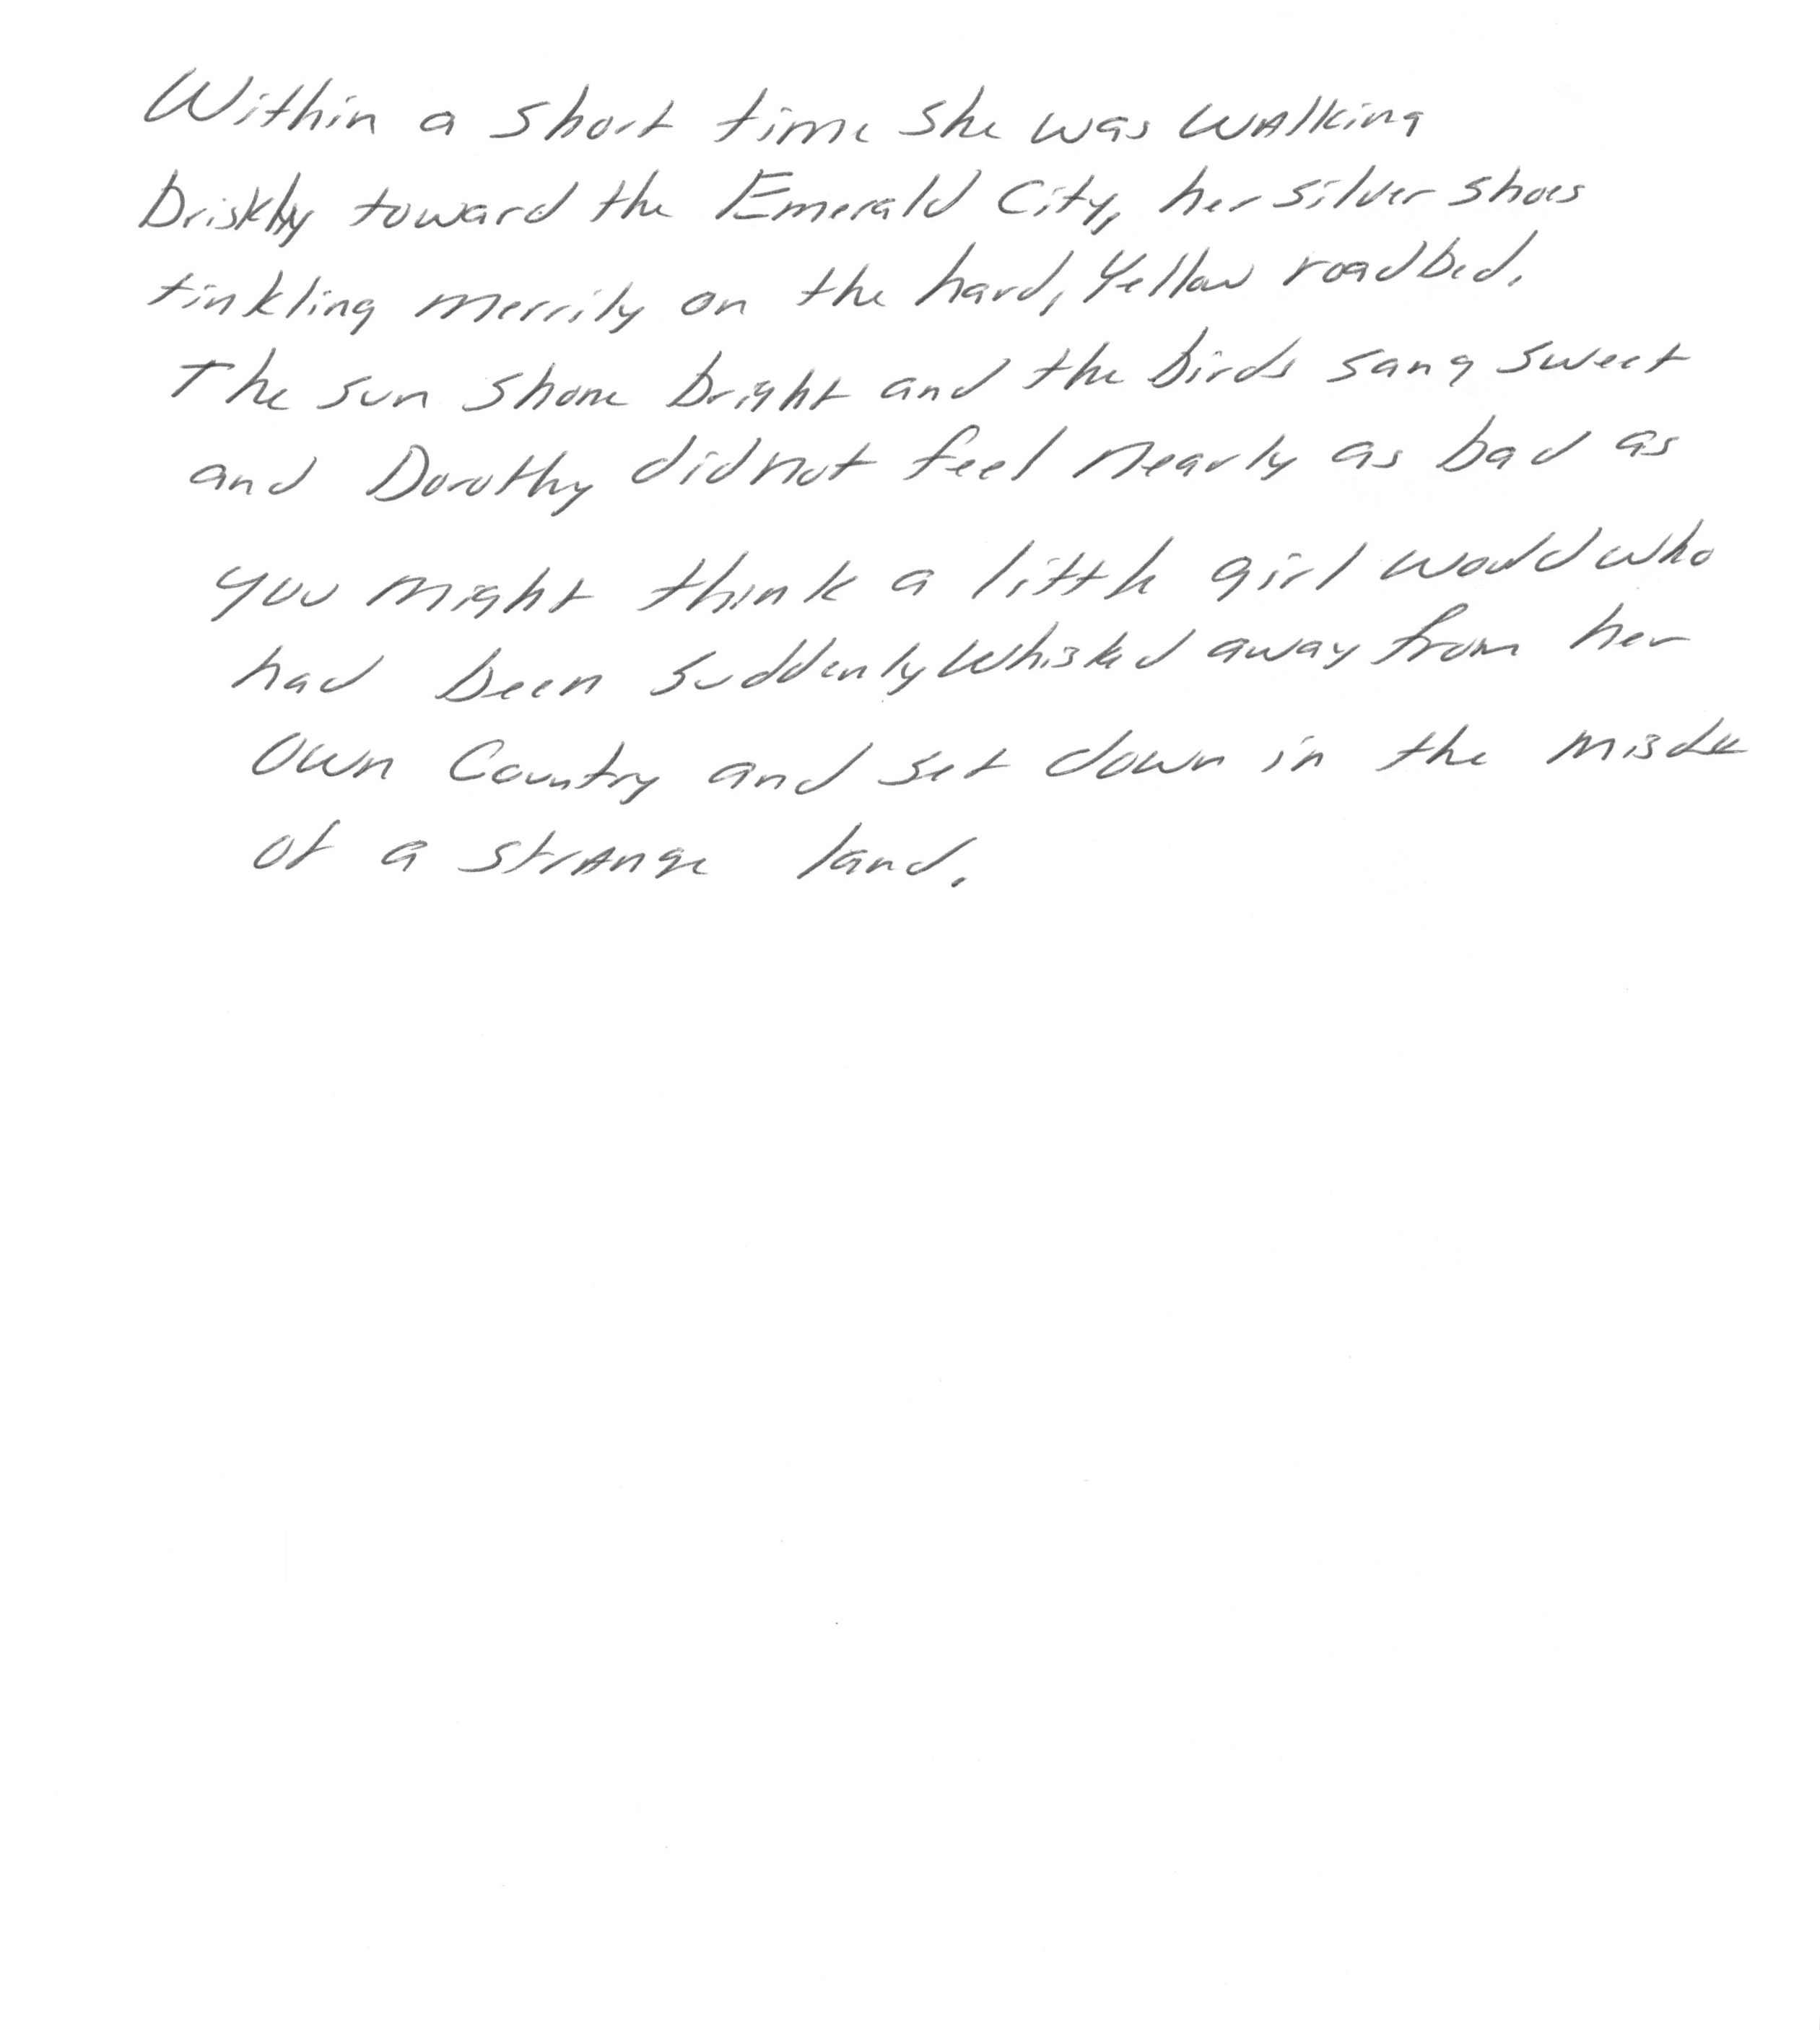 Within a short time she was walking
briskly toward the Emerald City, her silver shoes
tinkling merrily on the hard, yellow roadbed.
The sun shone bright and the birds sang sweet
and Dorothy did not feel nearly as bad as
you might think a little girl would who
had been suddenly whisked away from her
own Country and set down in the midst
of a strange land.